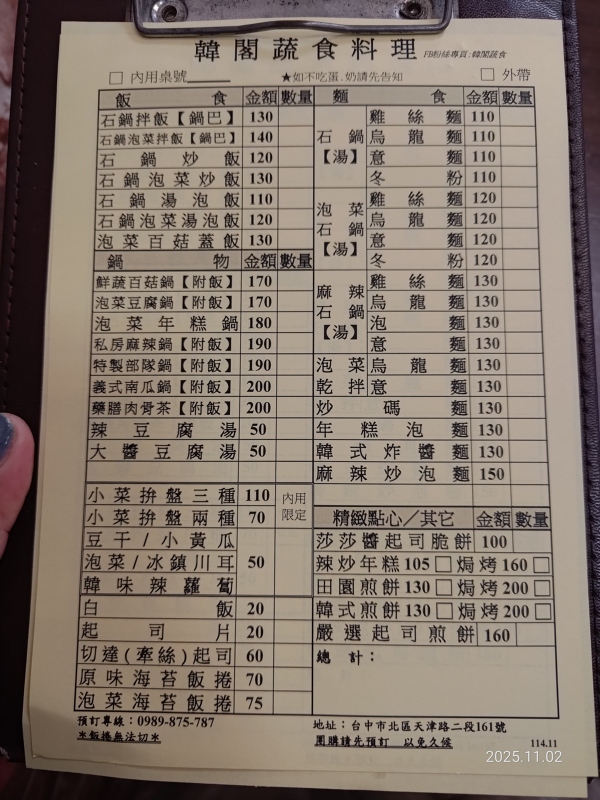 韓閣蔬食料理 FB粉絲專頁:韓閣蔬食
□ 內用桌號____ ★如不吃蛋.奶請先告知 □ 外帶
飯食 金額 數量
石鍋拌飯【鍋巴】 130
石鍋泡菜拌飯【鍋巴】 140
石鍋炒飯 120
石鍋泡菜炒飯 130
石鍋湯泡飯 110
石鍋泡菜湯泡飯 120
泡菜百菇蓋飯 130
鍋物 金額 數量
鮮蔬百菇鍋【附飯】 170
泡菜豆腐鍋【附飯】 170
泡菜年糕鍋 180
私房麻辣鍋【附飯】 190
特製部隊鍋【附飯】 190
義式南瓜鍋【附飯】 200
藥膳肉骨茶【附飯】 200
辣豆腐湯 50
大醬豆腐湯 50
小菜拚盤三種 110 內用
小菜拚盤兩種 70 限定
豆干/小黃瓜
泡菜/冰鎮川耳 50
韓味辣蘿蔔
白飯 20
起司片 20
切達(牽絲)起司 60
原味海苔飯捲 70
泡菜海苔飯捲 75
麵食 金額 數量
石鍋【湯】
雞絲麵 110
烏龍麵 110
意麵 110
冬粉 110
泡菜石鍋【湯】
雞絲麵 120
烏龍麵 120
意麵 120
冬粉 120
麻辣石鍋【湯】
雞絲麵 130
烏龍麵 130
泡麵 130
意麵 130
泡菜乾拌
烏龍麵 130
意麵 130
炒碼麵 130
年糕泡麵 130
韓式炸醬麵 130
麻辣炒泡麵 150
精緻點心/其它 金額 數量
莎莎醬起司脆餅 100
辣炒年糕 105 □ 焗烤 160 □
田園煎餅 130 □ 焗烤 200 □
韓式煎餅 130 □ 焗烤 200 □
嚴選起司煎餅 160
總計:
預訂專線:0989-875-787
※飯捲無法切※
地址:台中市北區天津路二段161號
團購請先預訂 以免久候 114.11
2025.11.02